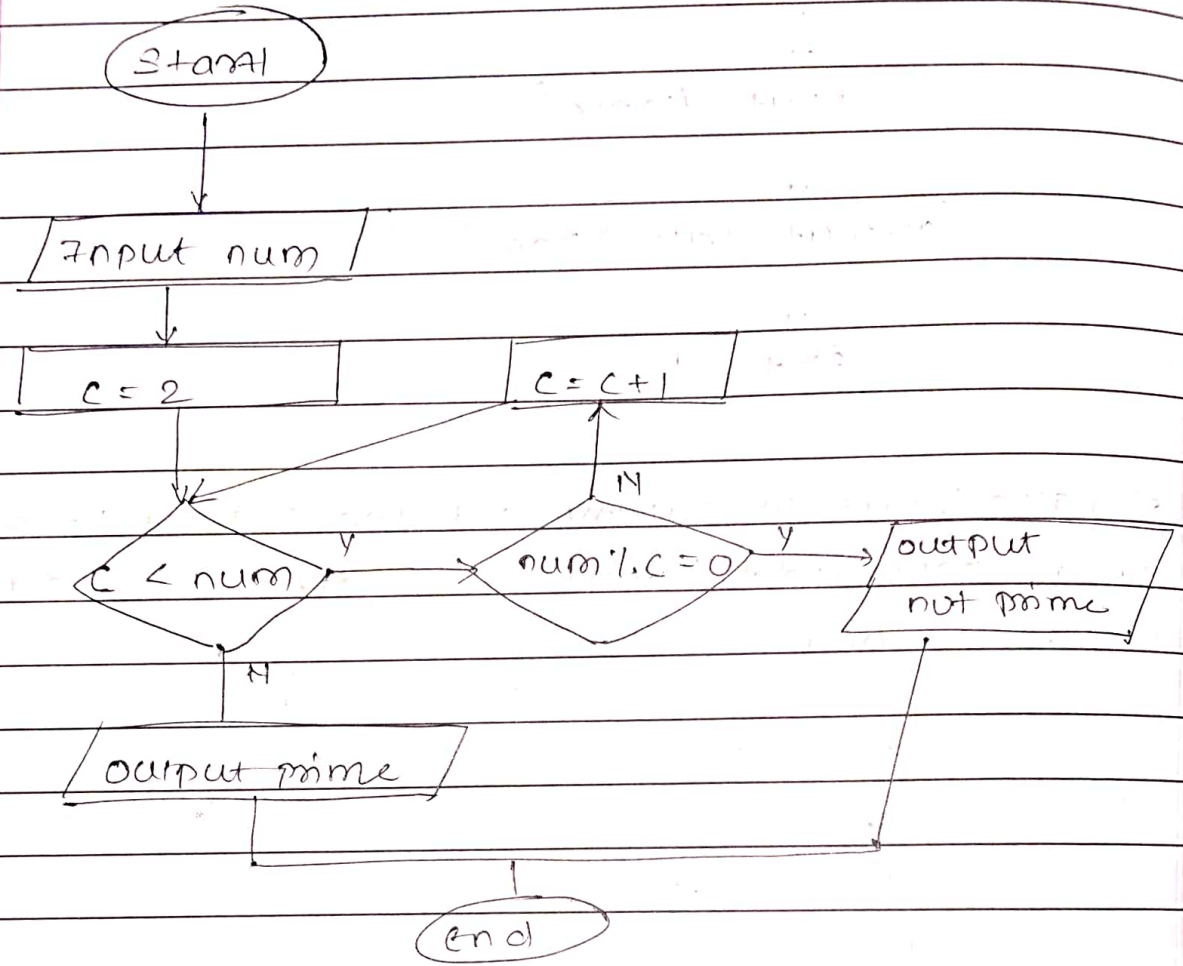 Start
Input num
C = 2
C = C + 1
N
C < num
Y
num % C = 0
Y
output
not prime
N
output prime
end